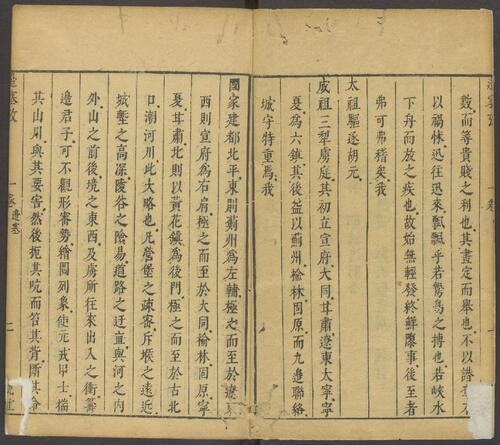 數而等貴賤之利也其畫定而舉也不以譛
以禍怵迅徃迅來飄飄乎若鷙鳥之搏也若峽水
下舟而放之疾也故始無輕發終鮮隳事後至者
弗可弗稽矣我
太祖驅逐胡元
成祖三犁虜庭其初立宣府大同甘肅遼東大寧寧
夏為六鎮其後益以薊州榆林固原而九邊聯絡
城守特重焉我
國家建都北平東則薊州為左輔極之而至於遼
西則宣府為右肩極之而至於大同榆林固原寧
夏甘肅北則以黃花鎮為後門極之而至於古北
口潮河川此大略也凡營堡之疎密斥堠之遠近
城塹之高深陵谷之險易道路之迂直與河之內
外山之前後境之東西及虜所往來出入之衝籌
邊君子可不觀形審勢繪圖列象使元戎甲士
其山川與其要害然後扼其吭而笞其背斷其
一卷
邊塞
二